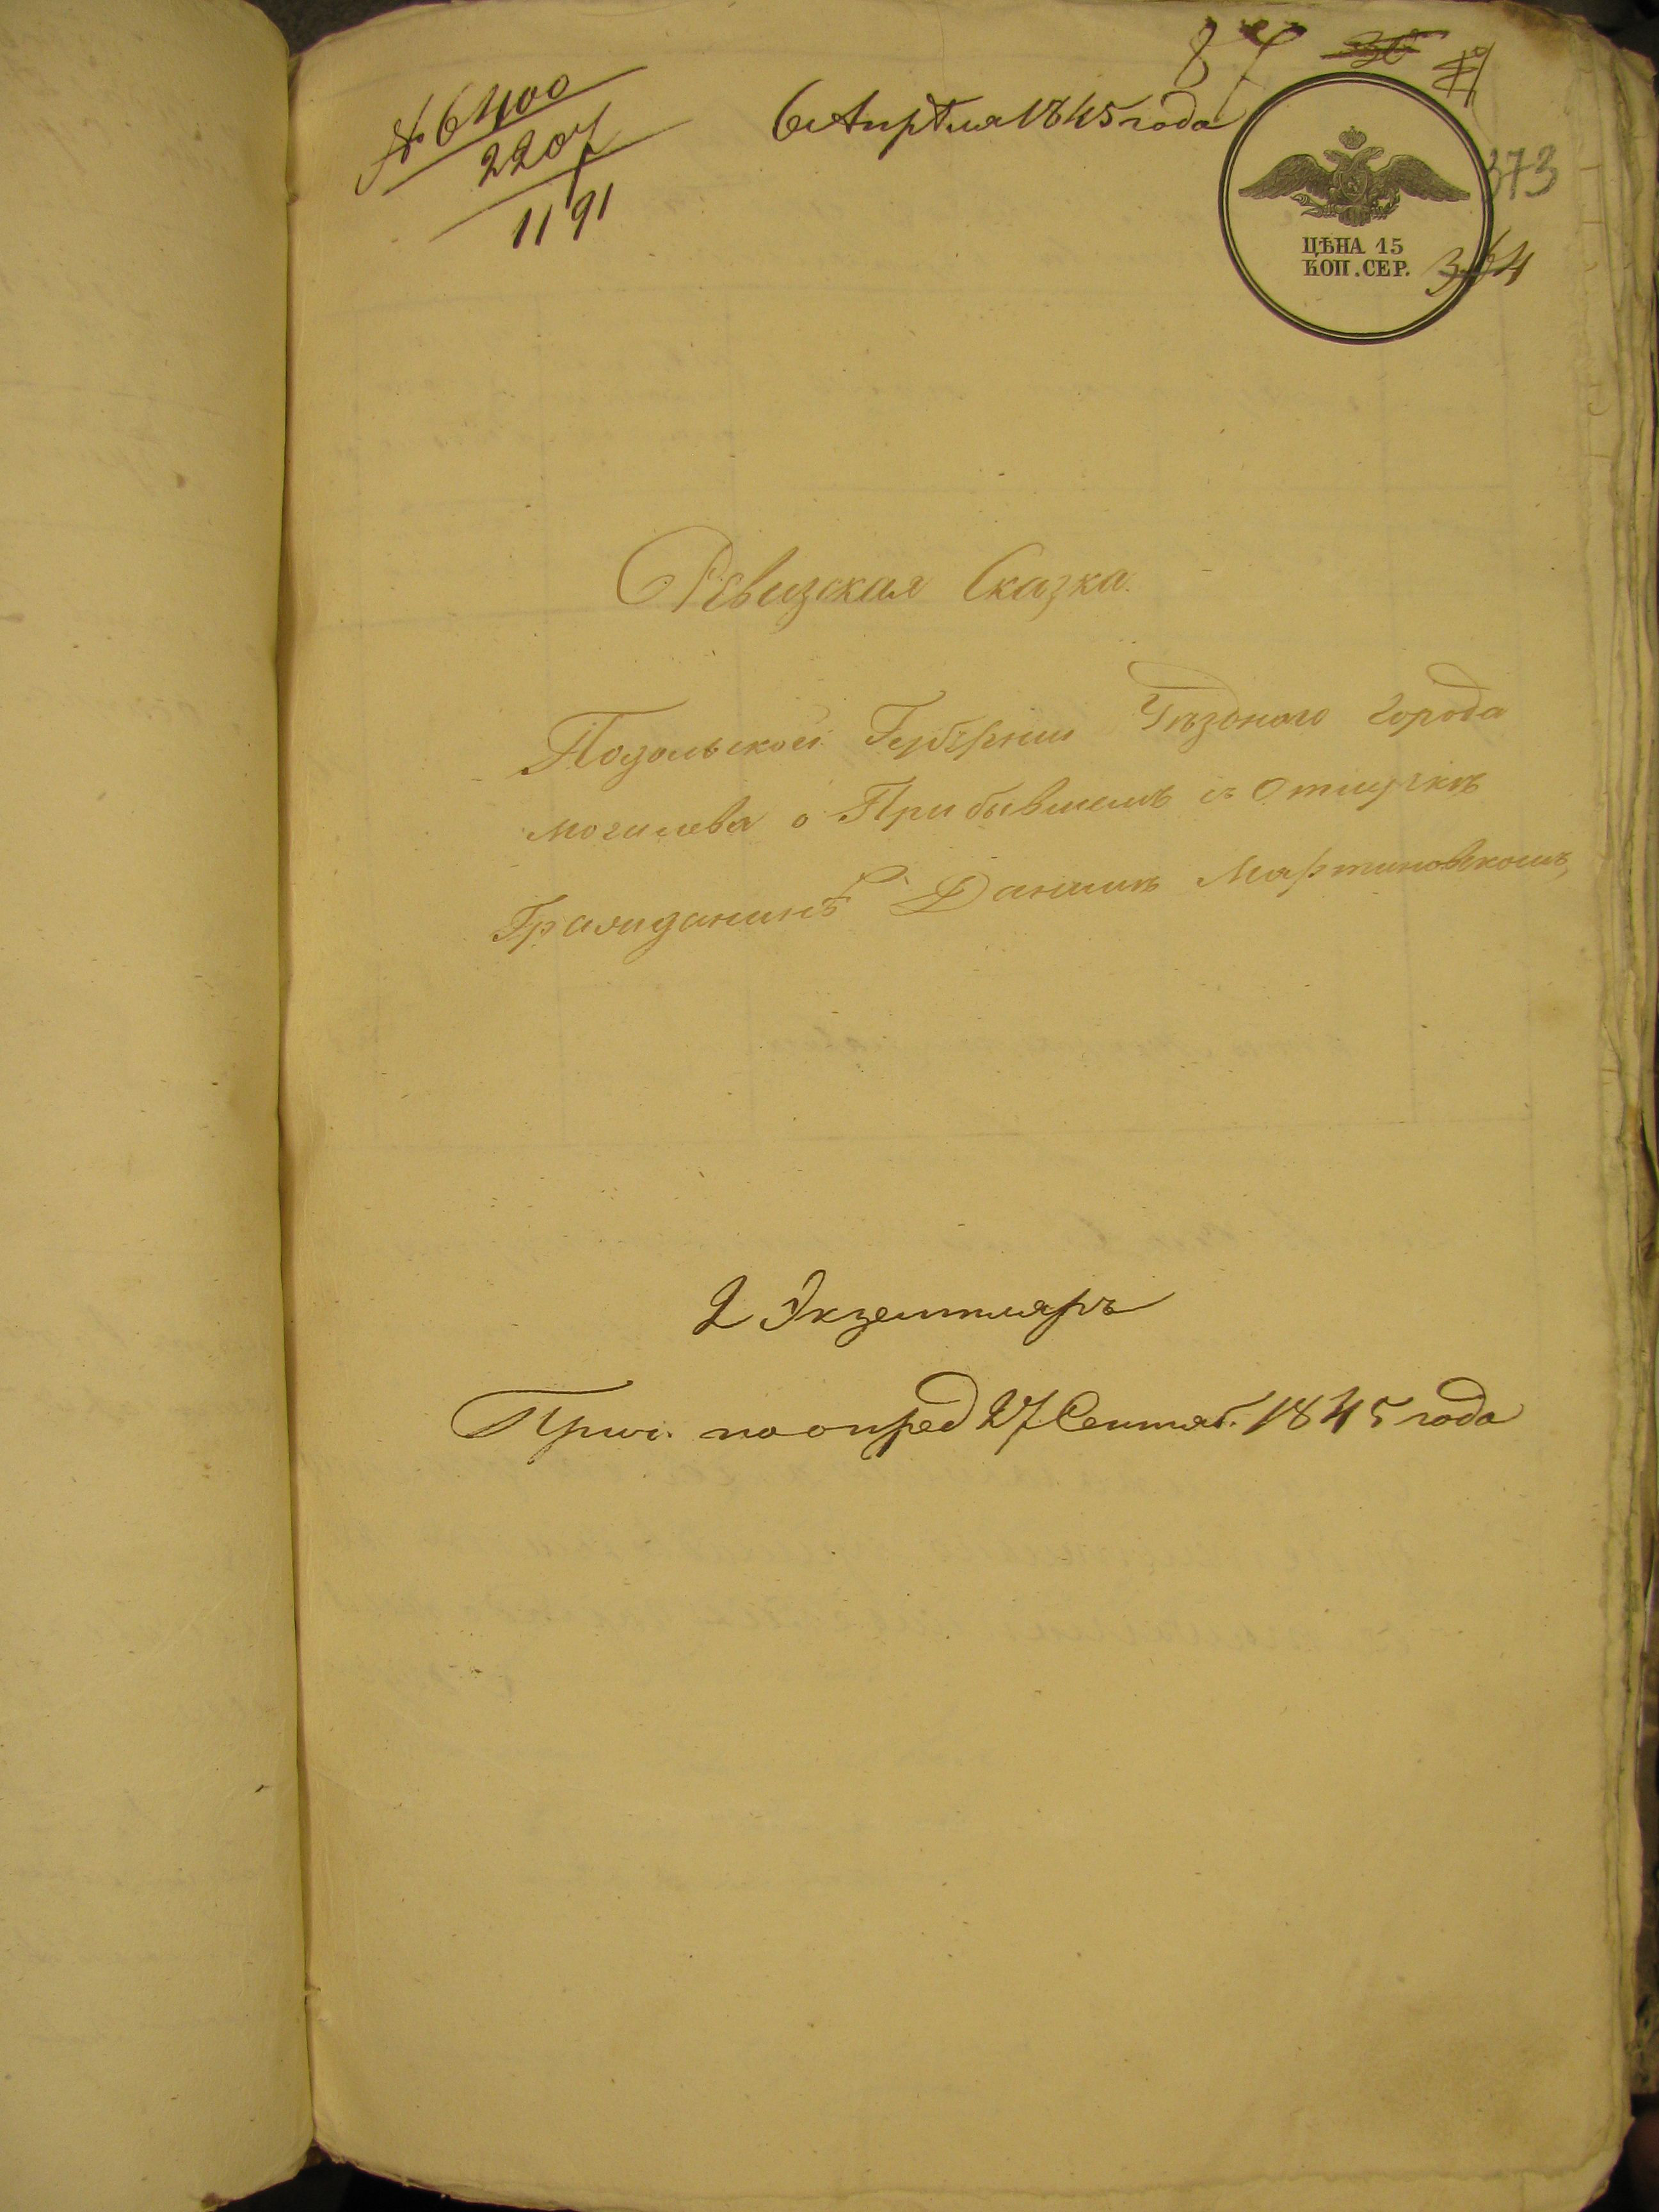 № 6400
2207
1191
6 Апрѣля 1845 года
87
373
364
ЦѢНА 15
КОП. СЕР.
Ревизская Сказка.
Подольской Губернии Уѣзднаго города
Могилева о Прибывшемъ съ Отпуска
Гражданинѣ Данилѣ Мартиновскомъ,
2 Экземпляръ
Прич. по опред 27 Сентяб. 1845 года